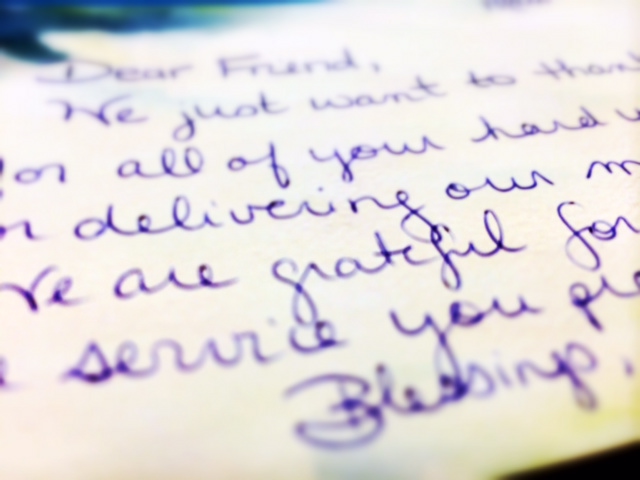 Dear Friend,
We just want to thank
for all of your hard
delivering our
We are grateful for
service you
Blessings,